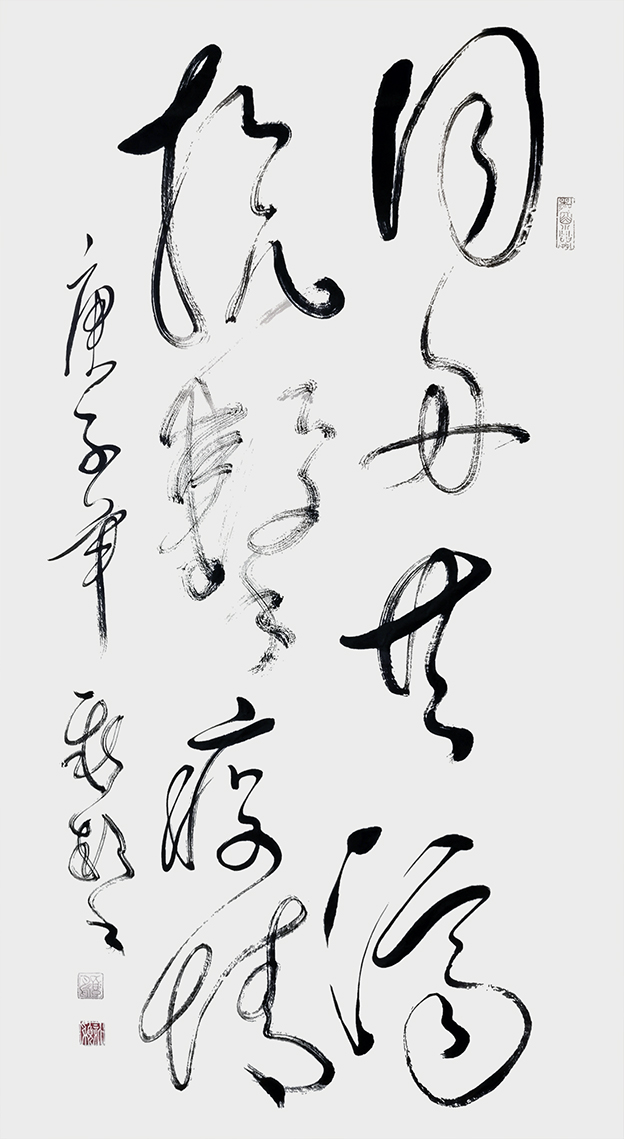 同舟共濟
抗擊疫情
庚子年